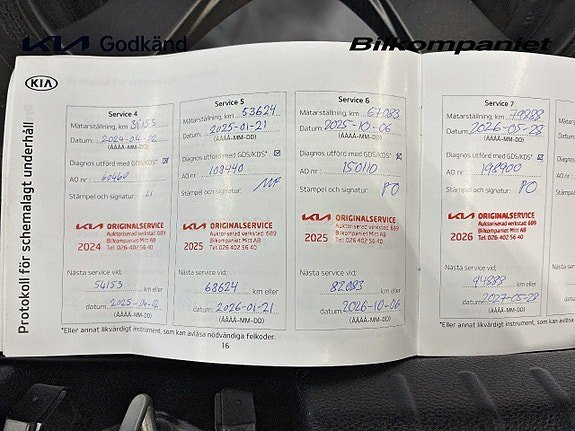 KIA Godkänd
Bilkompaniet
KIA
Protokoll för schemalagt underhåll
Service 4
Mätarställning, km 39153
Datum: 2024-04-02
(ÅÅÅÅ-MM-DD)
Diagnos utförd med GDS/KDS*
AO nr: 60466
Stämpel och signatur:
KIA ORIGINALSERVICE
Auktoriserad verkstad 689
Bilkompaniet Mitt AB
2024 Tel: 026-402 56 40
Nästa service vid:
54153 km eller
datum: 2025-04-02
(ÅÅÅÅ-MM-DD)
Service 5
Mätarställning, km 53624
Datum: 2025-01-21
(ÅÅÅÅ-MM-DD)
Diagnos utförd med GDS/KDS*
AO nr: 108440
Stämpel och signatur:
KIA ORIGINALSERVICE
Auktoriserad verkstad 689
Bilkompaniet Mitt AB
2025 Tel: 026-402 56 40
Nästa service vid:
68624 km eller
datum: 2026-01-21
(ÅÅÅÅ-MM-DD)
Service 6
Mätarställning, km 67083
Datum: 2025-10-06
(ÅÅÅÅ-MM-DD)
Diagnos utförd med GDS/KDS*
AO nr: 150110
Stämpel och signatur: PO
KIA ORIGINALSERVICE
Auktoriserad verkstad 689
Bilkompaniet Mitt AB
2025 Tel: 026-402 56 40
Nästa service vid:
82083 km eller
datum: 2026-10-06
(ÅÅÅÅ-MM-DD)
Service 7
Mätarställning, km 79888
Datum: 2026-05-28
(ÅÅÅÅ-MM-DD)
Diagnos utförd med GDS/KDS*
AO nr: 198900
Stämpel och signatur: PO
KIA ORIGINALSERVICE
Auktoriserad verkstad 689
Bilkompaniet Mitt AB
2026 Tel: 026-402 56 40
Nästa service vid:
94888 km eller
datum: 2027-05-28
(ÅÅÅÅ-MM-DD)
*Eller annat likvärdigt instrument, som kan avläsa nödvändiga felkoder.
*Eller annat likvärdigt instrument, som kan
16